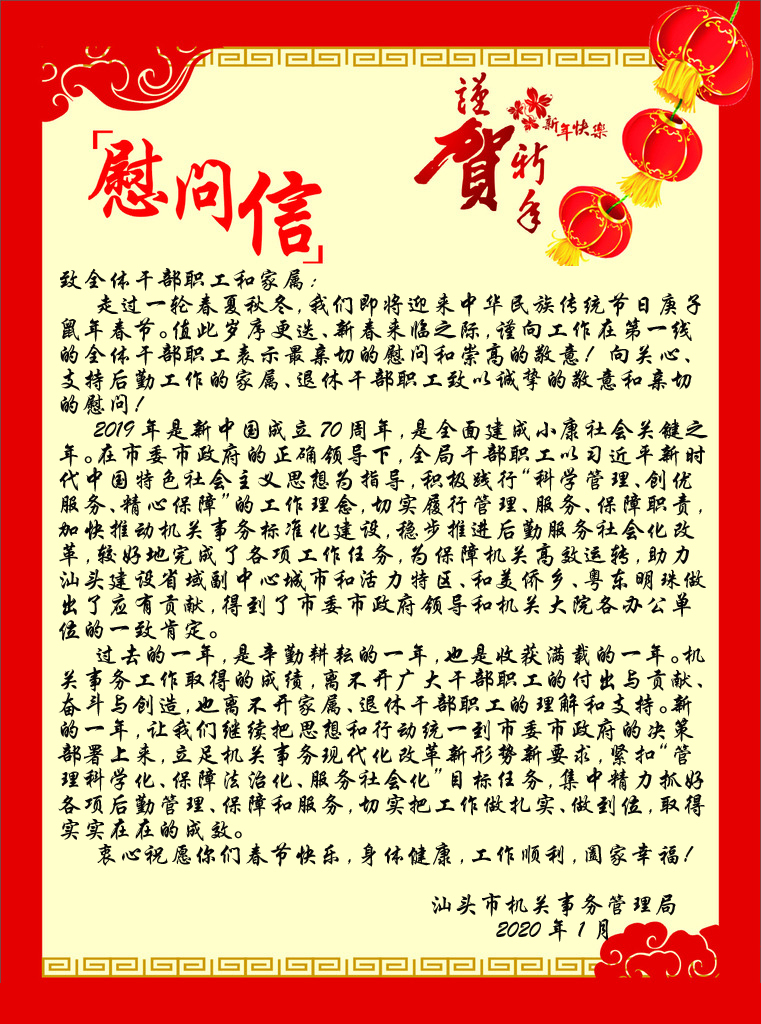 「慰问信」
謹賀新年
新年快樂
致全体干部职工和家属：
走过一轮春夏秋冬，我们即将迎来中华民族传统节日庚子
鼠年春节。值此岁序更迭、新春来临之际，谨向工作在第一线
的全体干部职工表示最亲切的慰问和崇高的敬意！向关心、
支持后勤工作的家属、退休干部职工致以诚挚的敬意和亲切
的慰问！
2019年是新中国成立70周年，是全面建成小康社会关键之
年。在市委市政府的正确领导下，全局干部职工以习近平新时
代中国特色社会主义思想为指导，积极践行“科学管理、创优
服务、精心保障”的工作理念，切实履行管理、服务、保障职责，
加快推动机关事务标准化建设，稳步推进后勤服务社会化改
革，较好地完成了各项工作任务，为保障机关高效运转，助力
汕头建设省域副中心城市和活力特区、和美侨乡、粤东明珠做
出了应有贡献，得到了市委市政府领导和机关大院各办公单
位的一致肯定。
过去的一年，是辛勤耕耘的一年，也是收获满载的一年。机
关事务工作取得的成绩，离不开广大干部职工的付出与贡献、
奋斗与创造，也离不开家属、退休干部职工的理解和支持。新
的一年，让我们继续把思想和行动统一到市委市政府的决策
部署上来，立足机关事务现代化改革新形势新要求，紧扣“管
理科学化、保障法治化、服务社会化”目标任务，集中精力抓好
各项后勤管理、保障和服务，切实把工作做扎实、做到位，取得
实实在在的成效。
衷心祝愿你们春节快乐，身体健康，工作顺利，阖家幸福！
汕头市机关事务管理局
2020年1月